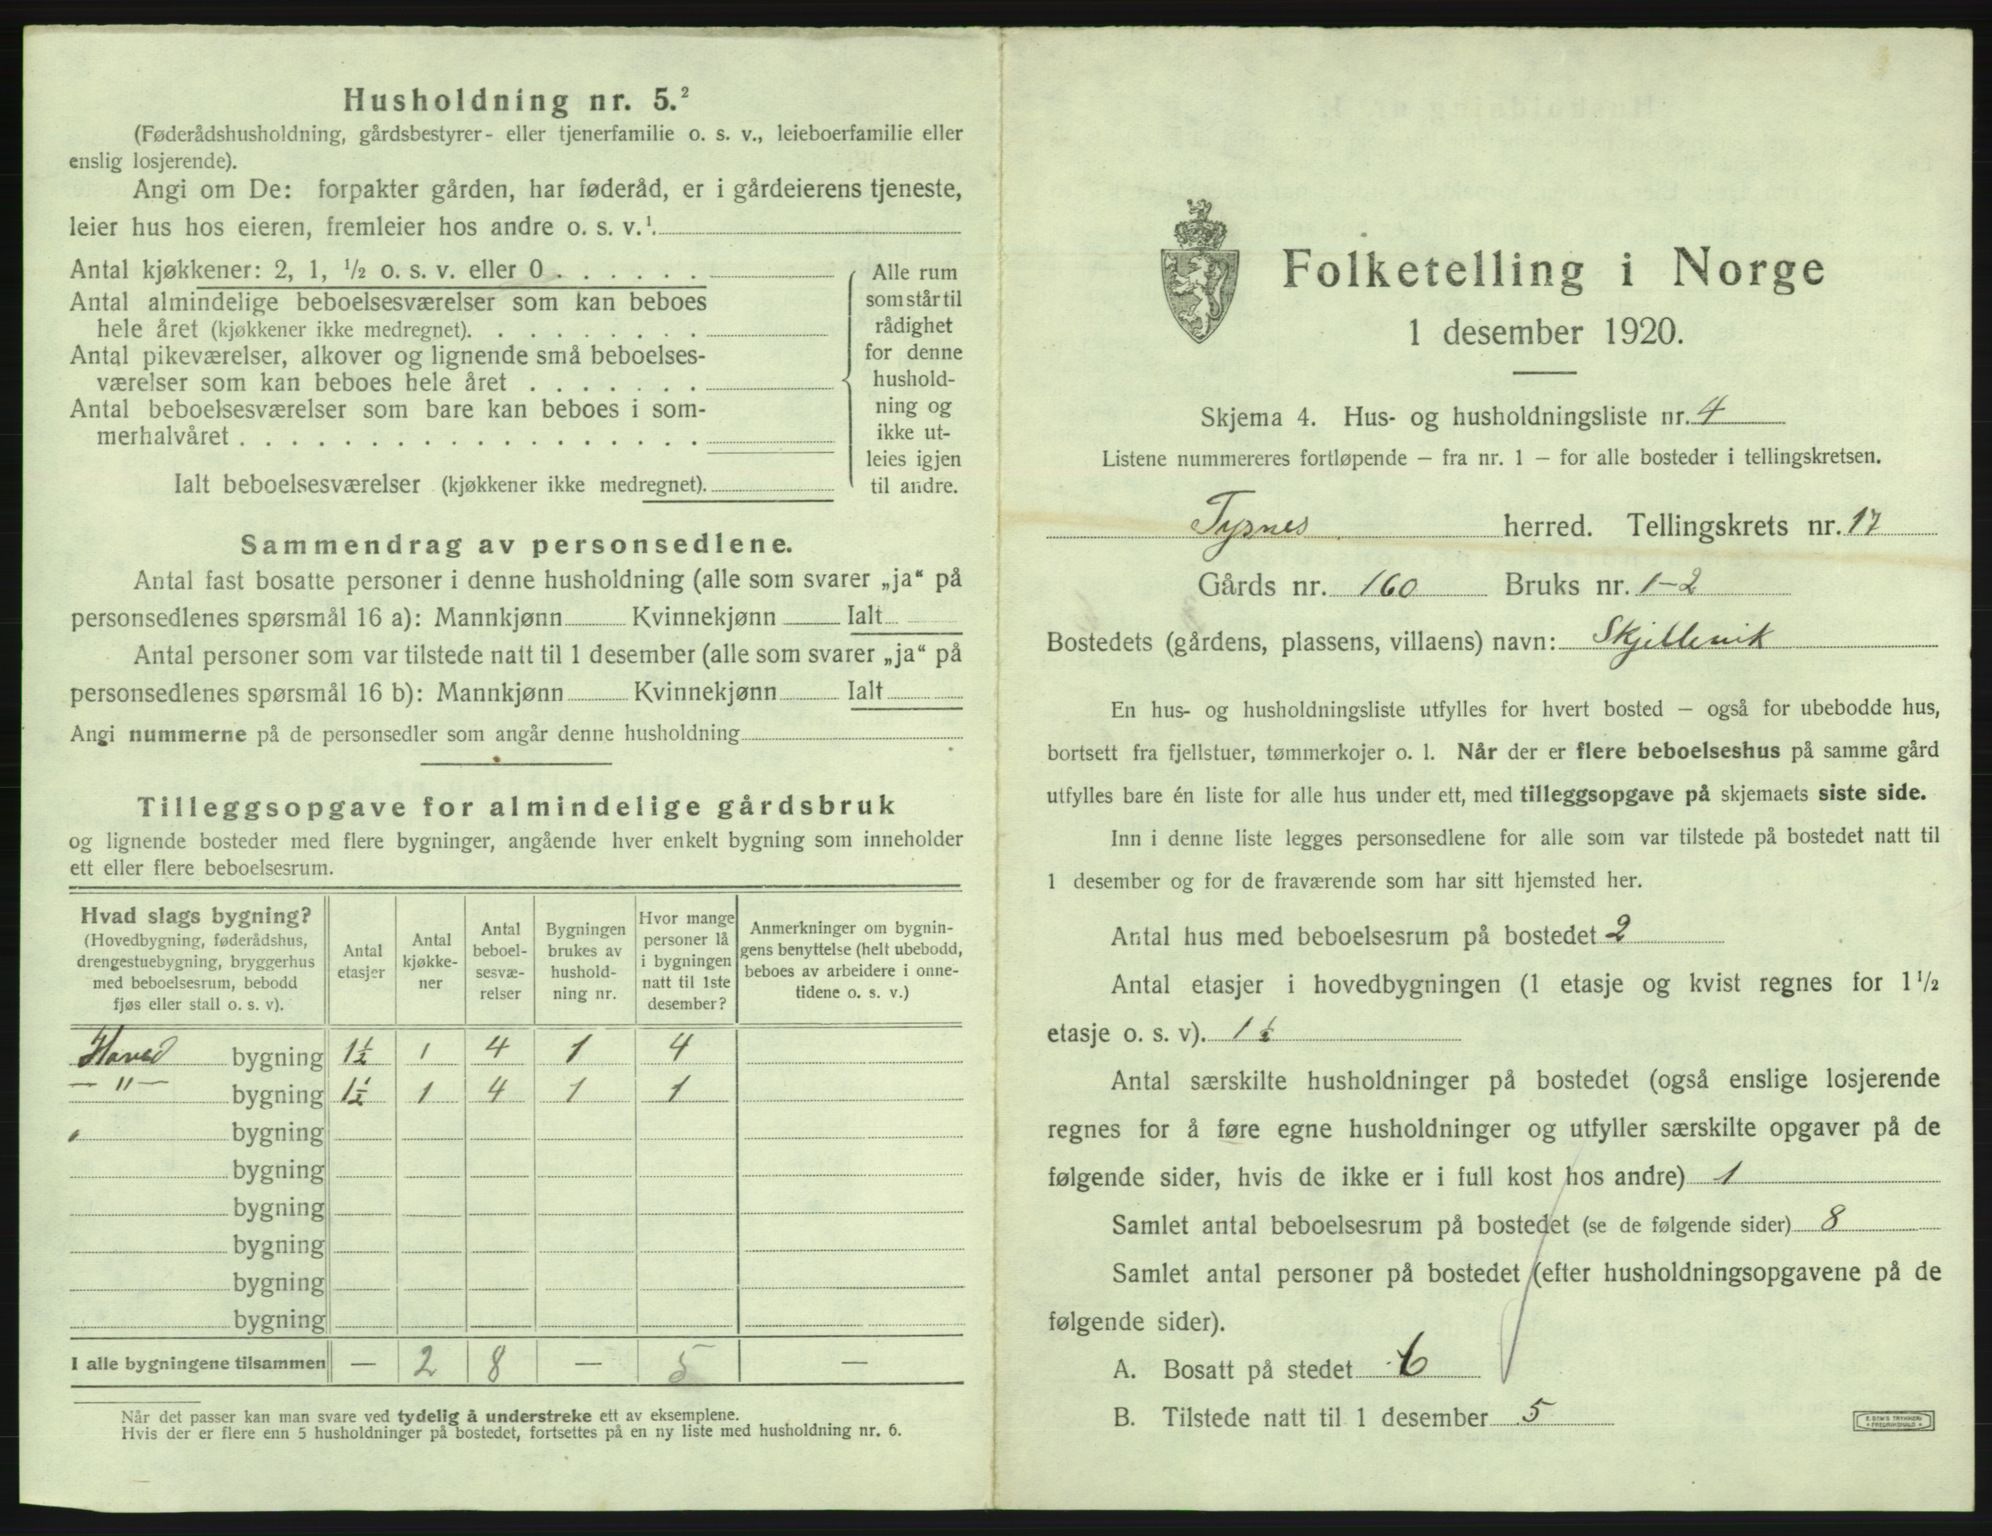 Husholdning nr. 5.²
(Føderådshusholdning, gårdsbestyrer- eller tjenerfamilie o. s. v., leieboerfamilie eller
enslig losjerende).
Angi om De: forpakter gården, har føderåd, er i gårdeierens tjeneste,
leier hus hos eieren, fremleier hos andre o. s. v.¹
Antal kjøkkener: 2, 1, ½ o. s. v. eller 0 . . . . . .
Antal almindelige beboelsesværelser som kan beboes
hele året (kjøkkener ikke medregnet). . . . . . . . .
Antal pikeværelser, alkover og lignende små beboelses-
værelser som kan beboes hele året . . . . . . .
Antal beboelsesværelser som bare kan beboes i som-
merhalvåret . . . . . . . . . . . . . . . . . .
Ialt beboelsesværelser (kjøkkener ikke medregnet).
Alle rum
som står til
rådighet
for denne
hushold-
ning og
ikke ut-
leies igjen
til andre.
Sammendrag av personsedlene.
Antal fast bosatte personer i denne husholdning (alle som svarer „ja“ på
personsedlenes spørsmål 16 a): Mannkjønn Kvinnekjønn Ialt
Antal personer som var tilstede natt til 1 desember (alle som svarer „ja“ på
personsedlenes spørsmål 16 b): Mannkjønn Kvinnekjønn Ialt
Angi nummerne på de personsedler som angår denne husholdning
Tilleggsopgave for almindelige gårdsbruk
og lignende bosteder med flere bygninger, angående hver enkelt bygning som inneholder
ett eller flere beboelsesrum.
Hvad slags bygning?
(Hovedbygning, føderådshus,
drengestuebygning, bryggerhus
med beboelsesrum, bebodd
fjøs eller stall o. s. v).
Antal
etasjer
Antal
kjøkke-
ner
Antal
beboel-
sesvæ-
relser
Bygningen
brukes av
hushold-
ning nr.
Hvor mange
personer lå
i bygningen
natt til 1ste
desember?
Anmerkninger om bygnin-
gens benyttelse (helt ubebodd,
beboes av arbeidere i onne-
tidene o. s. v.)
Hoved bygning 1½ 1 4 1 4
— " — bygning 1½ 1 4 1 1
bygning
bygning
bygning
bygning
bygning
bygning
I alle bygningene tilsammen — 2 8 — 5 —
Når det passer kan man svare ved tydelig å understreke ett av eksemplene.
Hvis der er flere enn 5 husholdninger på bostedet, fortsettes på en ny liste med husholdning nr. 6.
Folketelling i Norge
1 desember 1920.
Skjema 4. Hus- og husholdningsliste nr. 4
Listene nummereres fortløpende – fra nr. 1 – for alle bosteder i tellingskretsen.
Tysnes herred. Tellingskrets nr. 17
Gårds nr. 160 Bruks nr. 1-2
Bostedets (gårdens, plassens, villaens) navn: Skjellevik
En hus- og husholdningsliste utfylles for hvert bosted – også for ubebodde hus,
bortsett fra fjellstuer, tømmerkojer o. l. Når der er flere beboelseshus på samme gård
utfylles bare én liste for alle hus under ett, med tilleggsopgave på skjemaets siste side.
Inn i denne liste legges personsedlene for alle som var tilstede på bostedet natt til
1 desember og for de fraværende som har sitt hjemsted her.
Antal hus med beboelsesrum på bostedet 2
Antal etasjer i hovedbygningen (1 etasje og kvist regnes for 1½
etasje o. s. v). 1½
Antal særskilte husholdninger på bostedet (også enslige losjerende
regnes for å føre egne husholdninger og utfyller særskilte opgaver på de
følgende sider, hvis de ikke er i full kost hos andre) 1
Samlet antal beboelsesrum på bostedet (se de følgende sider) 8
Samlet antal personer på bostedet (efter husholdningsopgavene på de
følgende sider).
A. Bosatt på stedet 6
B. Tilstede natt til 1 desember 5